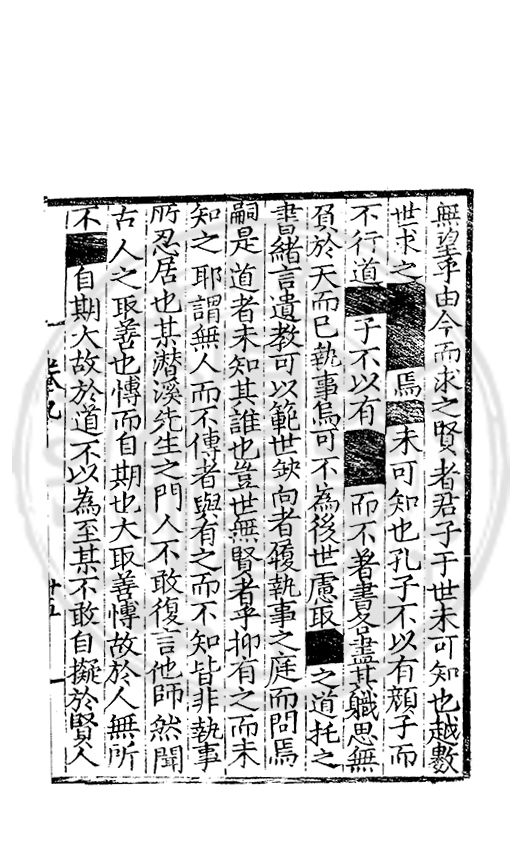 無望乎由今而求之賢者君子于世未可知也越數
世求之焉未可知也孔子不以有顏子而
不行道子不以有而不著書各盡其職思無
負於天而已執事烏可不為後世慮取之道托之
書緒言遺教可以範世缺向者履執事之庭而問焉
嗣是道者未知其誰也豈世無賢者乎抑有之而未
知之耶謂無人而不傳者與有之而不知皆非執事
所忍居也某潛溪先生之門人不敢復言他師然聞
古人之取善也愽而自期也大取善愽故於人無所
不自期大故於道不以為至某不敢自擬於賢人
卷九
十五